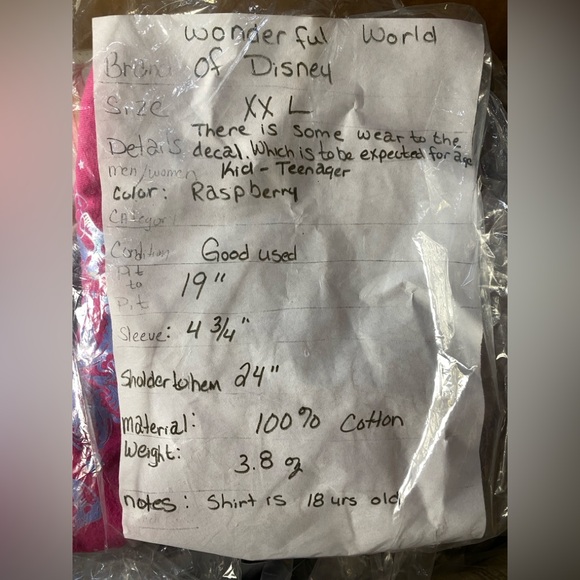 wonderful World
Brand of Disney
Size XX L
There is some wear to the
Details decal. Which is to be expected for age
men/women Kid - Teenager
Color: Raspberry
Category
Condition Good used
Pit
to 19"
Pit
Sleeve: 4 3/4"
Sholder to hem 24"
material: 100% Cotton
Weight: 3.8 oz
notes: Shirt is 18 yrs old